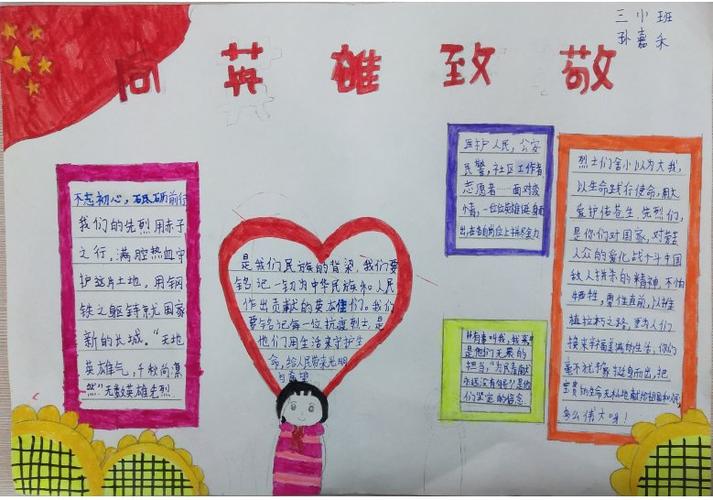 三小班
孙嘉禾
向英雄致敬
不忘初心，砥砺前行
我们的先烈用赤子
之行，满腔热血守
护这片土地，用钢
铁之躯铸就国家
新的长城。“天地
英雄气，千秋尚凛
然”无数英雄先烈
是我们民族的脊梁，我们要
铭记一切为中华民族和人民
作出贡献的英雄们。我们
要铭记每一位抗疫烈士，是
他们用生活来守护生
命，给人民带来光明
与希望
医护人民，公安
民警，社区工作者
志愿者……面对疫
情，一位位英雄挺身而
出，在各自岗位上拼尽全力
“若有事叫我，我来”
是他们无畏的
担当，“为民者
们坚定的信念
烈士们舍小以为大我，
以生命践行使命，用大
爱护佑苍生，先烈们，
是你们对国家，对劳苦
人众的爱化战士斗中国
敌人拼杀的精神，不怕
牺牲，勇往直前，以摧
枯拉朽之路，更为人们
换来幸福美满的生活，你们
毫不犹豫挺身而出，把
宝贵的生命无私地献给祖国和人民
多么伟大呀！